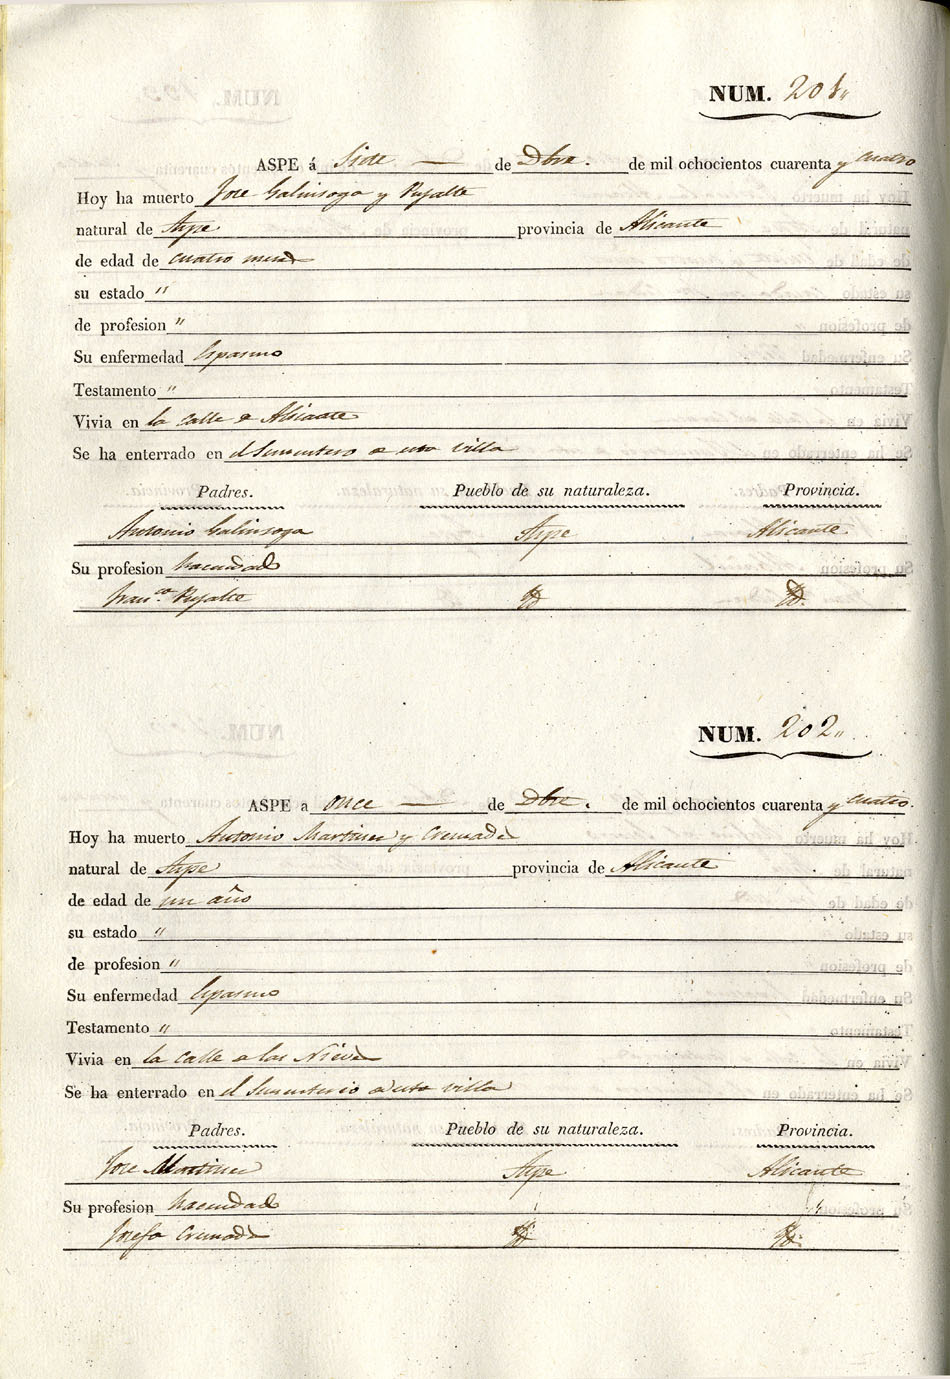 NUM. 201„
ASPE á Siete — de Dbre. de mil ochocientos cuarenta y cuatro
Hoy ha muerto Jose Galinsoga y Pujalte
natural de Aspe provincia de Alicante
de edad de cuatro meses
su estado "
de profesion "
Su enfermedad Espasmo
Testamento "
Vivia en la calle de Alicante
Se ha enterrado en el Sementero de esta villa
Padres. Pueblo de su naturaleza. Provincia.
Antonio Galinsoga Aspe Alicante
Su profesion hacendado
Franca. Pujalte Yd Yd.
NUM. 202„
ASPE a once — de Dbre. de mil ochocientos cuarenta y cuatro.
Hoy ha muerto Antonio Martinez y Cremades
natural de Aspe provincia de Alicante
de edad de un año
su estado "
de profesion "
Su enfermedad Espasmo
Testamento "
Vivia en la calle de las Nieves
Se ha enterrado en el Sementerio de esta villa
Padres. Pueblo de su naturaleza. Provincia.
Jose Martinez Aspe Alicante
Su profesion hacendado
Josefa Cremades Yd Yd.